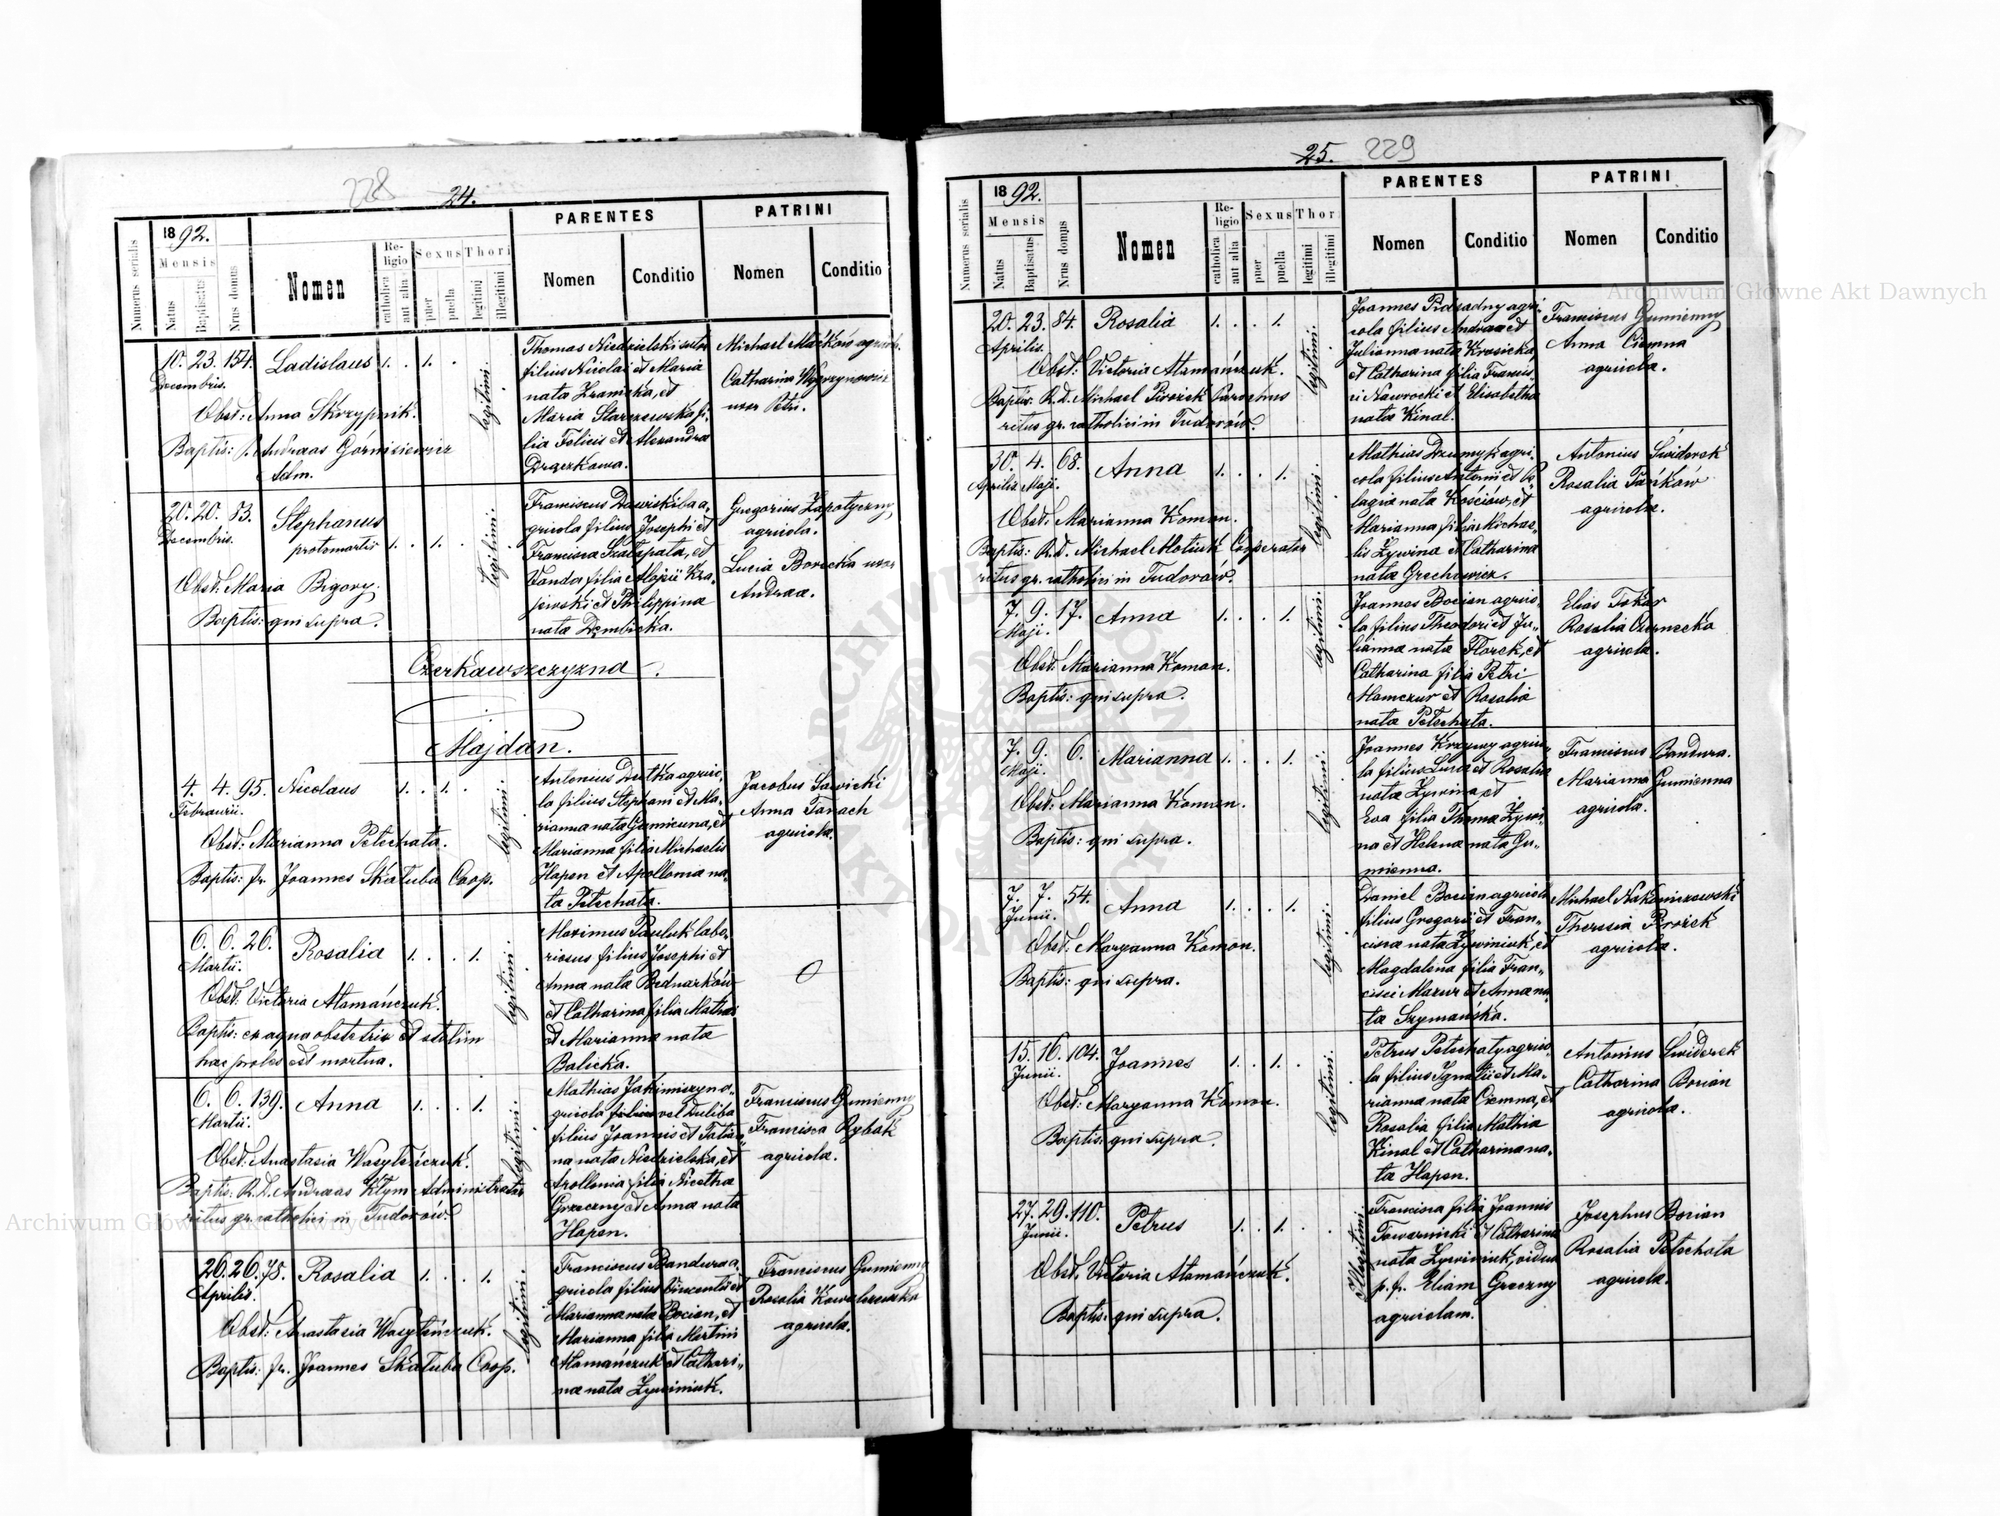 228 24.
Numerus serialis
1892.
Mensis
Natus
Baptisatus
Nrus domus
Nomen
Religio
catholica
aut alia
Sexus
puer
puella
Thori
legitimi
illegitimi
PARENTES
Nomen
Conditio
PATRINI
Nomen
Conditio
10. 23. 154. Ladislaus 1. . 1. .
Decembris.
Obst: Anna Skrzypnik.
Baptis: Andraas Górnisiewicz
Adm.
legitimi.
Thomas Niedzielski sutor
filius Nicolai et Maria
nata Zramicka, et
Maria Starzewska fi-
lia Felicis et Alexandra
Drączkowa.
Michael Maćków agricola.
Catharina Węgrzynowicz
uxor Petri.
20. 20. 83. Stephanus
Decembris. protomartis 1. . 1. .
Obst: Maria Bgory.
Baptis: qui supra.
legitimi.
Franciscus Drawiski a-
gricola filius Josephi et
Francisca Szałapata, et
Wanda filia Alojzii Kra-
jewski et Philippina
nata Dembicka.
Gregorius Zapotyczny
agricola.
Lucia Borecka uxor
Andraa.
Czerkawszczyzna.
Majdan.
4. 4. 95. Nicolaus 1. . 1. .
Februarii.
Obst: Marianna Petechata.
Baptis: fr. Joannes Skałuba Coop.
legitimi.
Antonius Dutka agrico-
la filius Stephani et Ma-
rianna nata Gumienna, et
Marianna filia Michaelis
Hapon et Apollonia na-
ta Petechata.
Jacobus Sawicki
Anna Tanach
agricola.
6. 6. 26. Rosalia 1. . . 1.
Martii.
Obst: Victoria Atamańczuk.
Baptis: ex aqua obstetrix et statim
haec proles est mortua.
legitimi.
Maximus Pauluk labo-
riosus filius Josephi et
Anna nata Bednarków
et Catharina filia Mathai
et Marianna nata
Balicka.
0
6. 6. 139. Anna 1. . . 1.
Martii.
Obst: Anastasia Wasyleńczuk.
Baptis: R. D. Andraas Klym Administrator
ritus gr. catholici in Tudorów.
legitimi.
Mathias Jakimiszyn a-
gricola filius vel Duliba
filius Joannis et Tatia-
na nata Niedzielska, et
Apollonia filia Nicetha
Grzeczny et Anna nata
Hapon.
Franciscus Gumienny
Francisca Rybak
agricola.
26. 26. 78. Rosalia 1. . . 1.
Aprilis.
Obst: Anastasia Wasyleńczuk.
Baptis: fr. Joannes Skałuba Coop.
legitimi.
Franciscus Bandura a-
gricola filius Vincentii et
Marianna nata Bocian, et
Marianna filia Martini
Atamańczuk et Cathari-
na nata Zywiniuk.
Franciscus Gumienny
Rosalia Kowalczewska
agricola.
25. 229
Numerus serialis
1892.
Mensis
Natus
Baptisatus
Nrus domus
Nomen
Religio
catholica
aut alia
Sexus
puer
puella
Thori
legitimi
illegitimi
PARENTES
Nomen
Conditio
PATRINI
Nomen
Conditio
20. 23. 84. Rosalia 1. . . 1.
Aprilis.
Obst: Victoria Atamańczuk.
Baptis: R. D. Michael Pirożek Parochus
ritus gr. catholici in Tudorów.
legitimi.
Joannes Podsadny agri-
cola filius Andraa et
Julianna nata Krasicka,
et Catharina filia Francis-
ci Nawrocki et Elisabetha
nata Kinal.
Franciscus Gumienny
Anna Ciemna
agricola.
30. 4. 68. Anna 1. . . 1.
Aprilis Maji.
Obst: Marianna Komon.
Baptis: R. d. Michael Motiuk Cooperator
ritus gr. catholici in Tudorów.
legitimi.
Mathias Drzumyk agri-
cola filius Antonii et Pe-
lagia nata Kościów, et
Marianna filia Michae-
lis Zywina et Catharina
nata Grechowicz.
Antonius Świderek
Rosalia Pańków
agricola.
7. 9. 17. Anna 1. . . 1.
Maji.
Obst: Marianna Komon.
Baptis: qui supra.
legitimi.
Joannes Bocian agrico-
la filius Theodori et Ju-
lianna nata Florek, et
Catharina filia Petri
Mamczur et Rosalia
nata Petechata.
Elias Tokar
Rosalia Czernecka
agricola.
7. 9. 6. Marianna 1. . . 1.
Maji.
Obst: Marianna Komon.
Baptis: qui supra.
legitimi.
Joannes Krzywy agrico-
la filius Luca et Rosalia
nata Zywina et
Eva filia Thoma Zywi-
na et Helena nata Gu-
mienna.
Franciscus Bandura.
Marianna Gumienna
agricola.
7. 7. 54. Anna 1. . . 1.
Junii.
Obst: Maryanna Komon.
Baptis: qui supra.
legitimi.
Daniel Bocian agricola
filius Gregorii et Fran-
cisca nata Zywiniuk, et
Magdalena filia Fran-
cisci Mazur et Anna na-
ta Szymańska.
Michael Nakonieczewski
Theresia Pirożek
agricola.
15. 16. 104. Joannes 1. . 1. .
Junii.
Obst: Maryanna Komon.
Baptis: qui supra.
legitimi.
Petrus Petechaty agrico-
la filius Ignatii et Ma-
rianna nata Ciemna, et
Rosalia filia Mathia
Kinal et Catharina na-
ta Hapon.
Antonius Świderek
Catharina Bocian
agricola.
27. 29. 110. Petrus 1. . 1. . .
Junii.
Obst: Victoria Atamańczuk.
Baptis: qui supra.
Illegitimi.
Francisca filia Joannis
Towarnicki et Catharina
nata Zywiniuk, vidua
p. f. Eliam Grzeczny
agricolam.
Josephus Bocian
Rosalia Petechata
agricola.
Archiwum Główne Akt Dawnych
Archiwum Główne Akt Dawnych